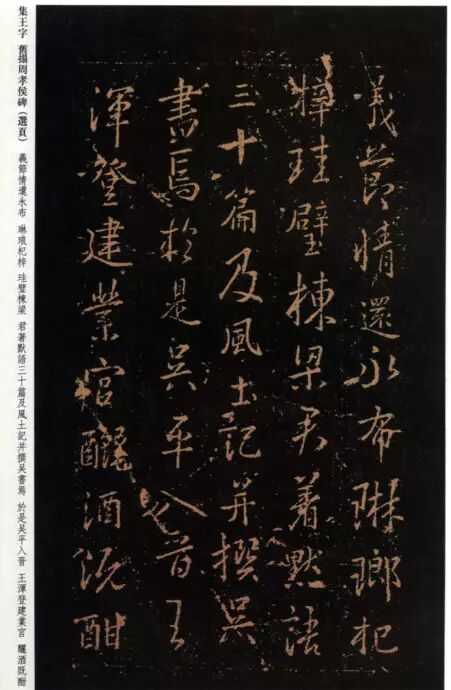 義節情還永布琳瑯杞
梓珪璧棟梁君著默語
三十篇及風土記并撰吳
書焉於是吳平入晉王
渾登建業宮釃酒既酣
集王字 舊搨周孝侯碑(選頁) 義節情還永布 琳琅杞梓 珪璧棟梁 君著默語三十篇及風土記并撰吳書焉 於是吳平入晉 王渾登建業宮 釃酒既酣